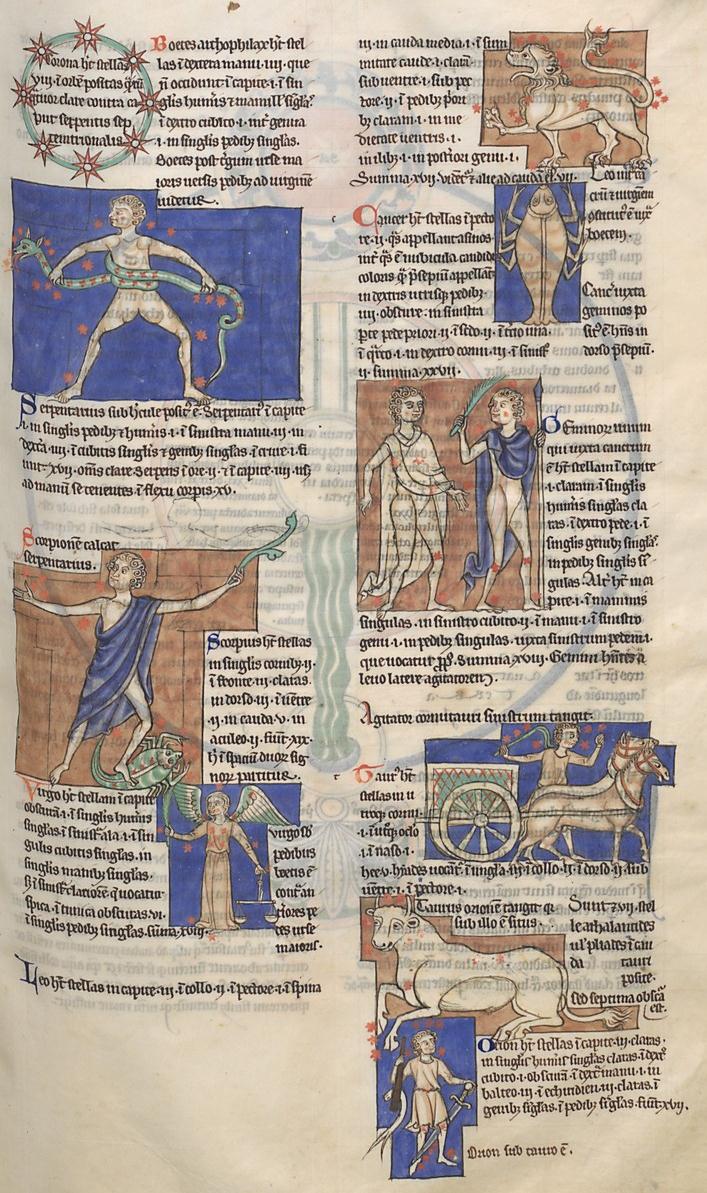 Corona ht stellas
viii
orbe positas
contra ca
put serpentis sep
tentrionalis
Boetes arthophilaxe ht stel
las i dextera manu .iiii. que
n occidunt i capite .i. i sin
glis humis & mamill sigla.
i dextro cubito .i.
.i. in singlis pedib singlas.
Boetes post tgum urse ma
ioris uersis pedib ad uirgine
uidetur.
Serpentarius sub hcule posit e. Serpentari i capite
.i. in singlis pedib & humis .i. i sinistra manu .iii. in
dextra .iiii. i cubitis singlas & genib singlas i crure .i. fi
unt xvii. oms clare Serpens i ore .ii. i capite .iiii. usq
ad manu se tenentes i flexu corpis .xv.
Scorpione calcat
serpentarius.
Scorpius ht stellas
in singlis cornib .ii.
i fronte .iii. claras.
in dorso .iii. i uetre
.ii. in cauda .v. in
aculeo .ii. fiut .xix.
h i spaciu duor sig
nor partitur.
Virgo ht stellam i capite
obscura .i. i singlis humis
singlas i sinistr ala .i. i sin
gulis cubitis singlas. in
singlis manib singlas.
s i sinistr clariore q uocatur
spica. i tunica obscuras .vi.
i singlis pedib singlas. suma xviii.
Virgo sb
pedibus
boetis e
contran
teriores pe
des urse
maioris.
Leo ht stellas in capite .iii. i collo .ii. i pectore .i. i spina
.iii. in cauda media .i. i sum
mitate caude .i. clara
sub uentre .i. sub pec
tore .ii. i pedib pori
b claram .i. in me
dietate uentris .i.
in ilib .i. in posteriori genu .i.
Summa .xvii. & alie ad cauda ei .vii.
Leo int ca
cru & uirginem
boetem.
Cancer ht stellas i pecto
re .ii. qs appellant asinos
int qs e nubicula candida
coloris q psepiu appellat
in dextris utrisq pedib
.iiii. obscure. in sinistra
pte pede priori .ii. i sedo .ii. i tcio una.
i qrto .i. in dextro cornu .iii. i sinist
.ii. summa .xxvii.
Canc iuxta
geminos po
sit e hns in
dorso psepiu.
Geminor unum
qui iuxta cancrum
e ht stellam i capite
.i. claram. i singlis
humis singlas cla
ras. i dextro pede .i. i
singlis genib singlas.
in pedib singlas si
gulas. Alt ht in ca
pite .i. i mammis
singulas. in sinistro cubito .ii. i manu .i. i sinistro
genu .i. in pedib singulas. iuxta sinistrum pedem .i.
que uocatur pps. Summa xviii. Gemini hntes a
leuo latere agitatorem.
Agitator cornu tauri sinistrum tangit.
Taur ht
stellas in u
troq cornu
.i. i utroq oclo
.i. i naso .i.
hee .v. hiades uocant. i ungla .iii. i collo .ii. i dorso .ii. sub
uetre .i. i pectore .i.
Taurus orione tangit q
sub illo e situs.
Sunt & vii. stel
le athalantides
ul pliades i cau
da tauri
posite.
sed septima obscu
est.
Orion ht stellas i capite .iii. claras.
in singlis humis singlas claras. i dextr
cubito .i. obscura. i dextr manu .i. in
balteo .iii. i echiridien .iii. claras. i
genib siglas. i pedib siglas. fiut xvii.
Orion sub tauro e.